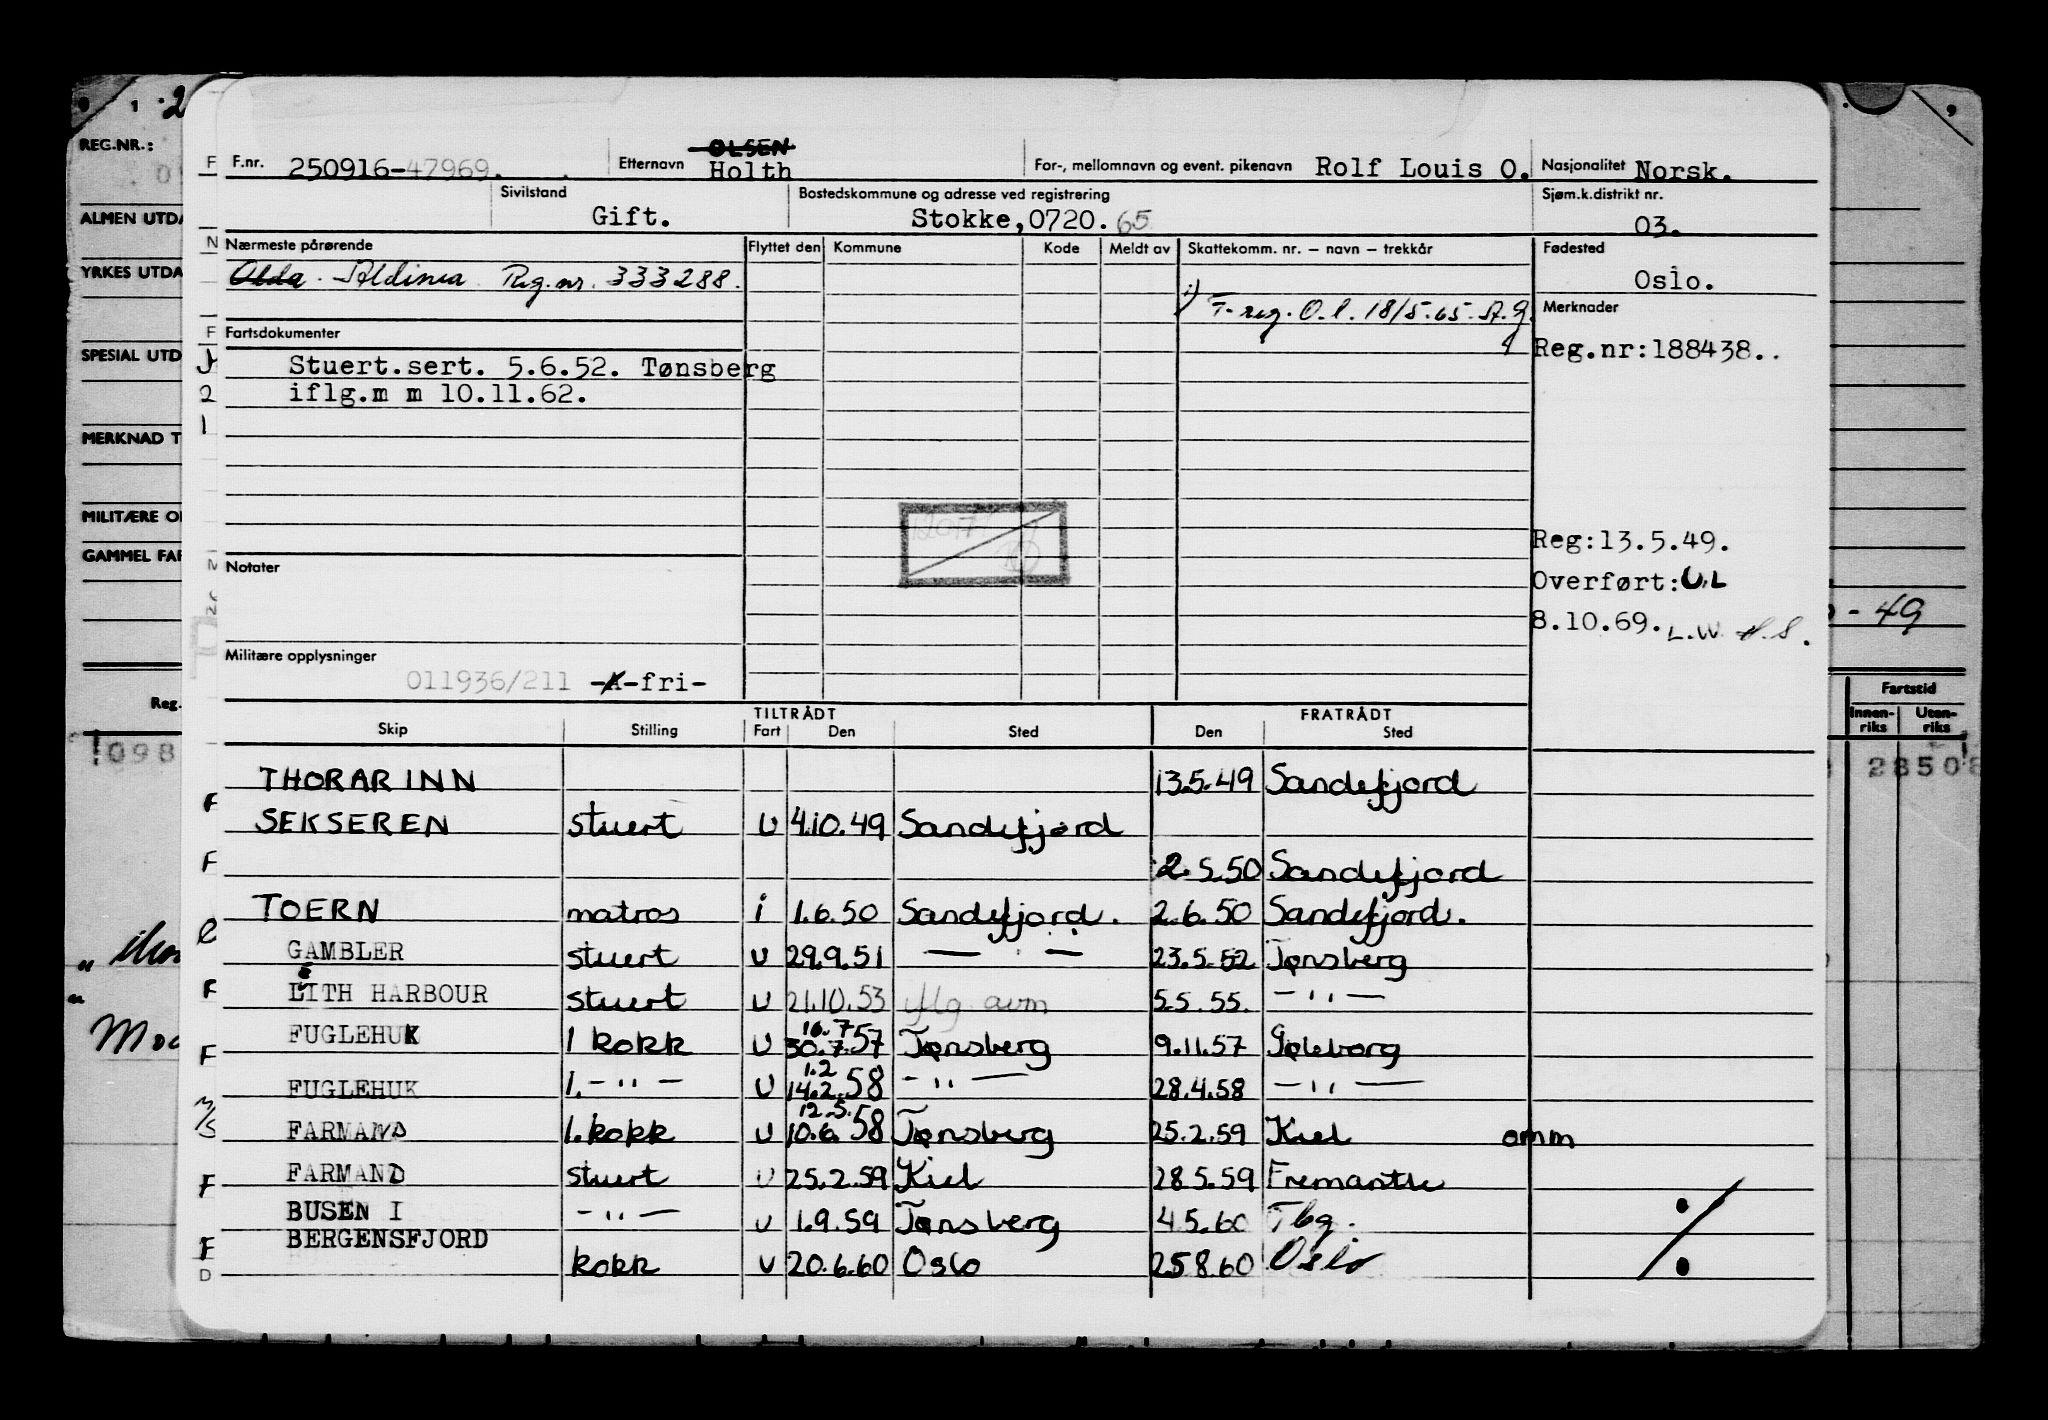 REG.NR.:
ALMEN UTDA
YRKES UTDA
SPESIAL UTD
MERKNAD T
MILITÆRE O
GAMMEL FA
Reg.
098
F.nr. 250916-47969. Etternavn OLSEN Holth For-, mellomnavn og event. pikenavn Rolf Louis O. Nasjonalitet Norsk.
Sivilstand Gift. Bostedskommune og adresse ved registrering Stokke,0720. 65 Sjøm.k.distrikt nr. 03.
Nærmeste pårørende Flyttet den Kommune Kode Meldt av Skattekomm. nr. – navn – trekkår Fødested
Alda Aldinia Reg.nr. 333288. Oslo.
F-reg. O.l. 18/5-65-St.g. Merknader
Fartsdokumenter
Reg.nr:188438..
Stuert.sert. 5.6.52. Tønsberg
iflg.m m 10.11.62.
Reg:13.5.49.
Notater
Overført:U.L
8.10.69. L.W. H.S.
- 49
Militære opplysninger
011936/211 -A-fri-
Fartstid
Innen-riks Uten-riks
28508
TILTRÅDT FRATRÅDT
Skip Stilling Fart Den Sted Den Sted
THORARINN 13.5.49 Sandefjord
SEKSEREN stuert U 4.10.49 Sandefjord
2.5.50 Sandefjord
TOERN matros i 1.6.50 Sandefjord. 2.6.50 Sandefjord.
GAMBLER stuert U 29.9.51 — " — 23.5.52 Tønsberg
LEITH HARBOUR stuert U 21.10.53 iflg. avm 5.5.55. — " —
FUGLEHUK 1 kokk U 16.7 30.7.57 Tønsberg 9.11.57 Gøteborg
FUGLEHUK 1. — " — U 1.2 14.2.58 — " — 28.4.58 — " —
FARMAND 1. kokk U 12.5. 10.6.58 Tønsberg 25.2.59 Kiel omm
FARMAND stuert U 25.2.59 Kiel 28.5.59 Fremantle
BUSEN I — " — U 1.9.59 Tønsberg 4.5.60 Tbg.
BERGENSFJORD kokk U 20.6.60 Oslo 25.8.60 Oslo